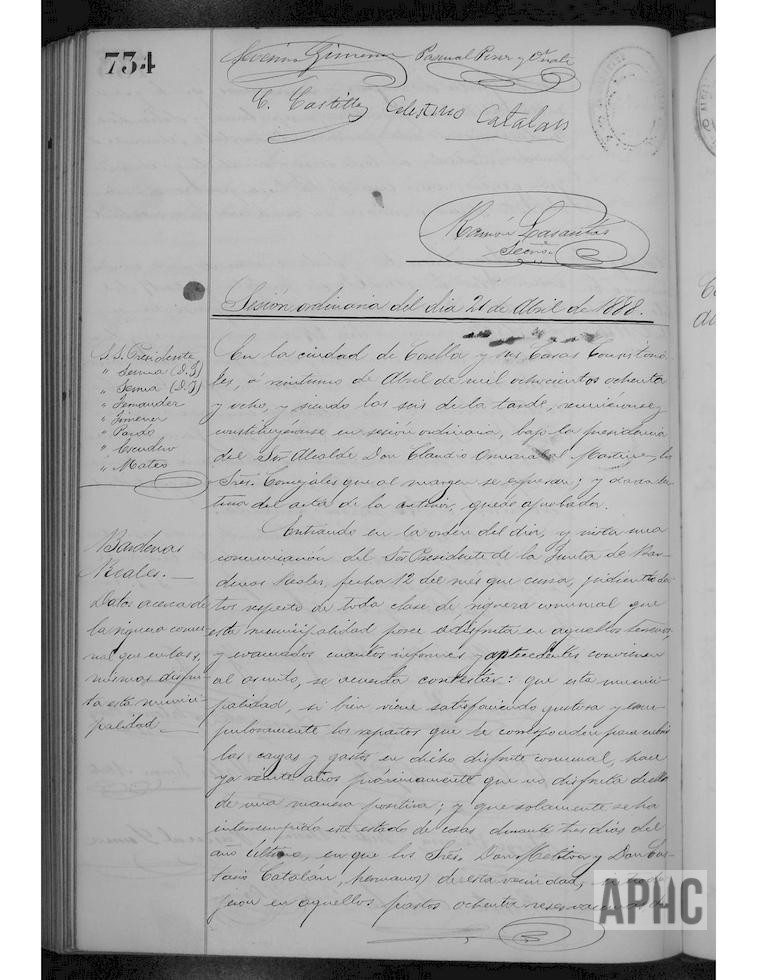 734
Pascual Perez y Oñate
C. Castillo Celestino Catalan
Ramón
Secrio.
Sesión ordinaria del dia 21 de Abril de 1888.
S. S. Presidente
" Serna (D. J)
" Serna (D. J)
" Fernandez
" Jimenez
" Pardo
" Escudero
" Mateo
En la ciudad de Corella y sus Casas Consistoria-
les, á veintiuno de Abril de mil ochocientos ochenta
y ocho, y siendo las seis de la tarde, reuniéronse y
constituyéronse en sesión ordinaria, bajo la presidencia
del Sor Alcalde Don Claudio los
Sres. Concejales que al margen se expresan; y dada lec-
tura del acta de la anterior, quedó aprobada.
Bardenas
Reales.—
Datos acerca de
la riquera comu-
nal que en las
mismas disfru-
ta esta munici-
palidad.—
Entrando en la orden del dia, y vista una
comunicación del Sor Presidente de la Junta de Bar-
denas Reales, fecha 12 del més que cursa, pidiendo da-
tos respecto de toda clase de riquera comunal que
esta municipalidad posee ó disfruta en aquellos terrenos,
y evacuados cuantos informes y antecedentes convienen
al asunto, se acuerda contestar: que esta munici-
palidad, si bien viene satisfaciendo gustosa y escru-
pulosamente los repartos que le corresponden para cubrir
las cargas y gastos en dicho disfrute comunal, hace
ya veinte años próximamente que no disfruta de ella
de una manera positiva; y que solamente se ha
interrumpido este estado de cosas durante tres dias del
año último, en que los Sres. Don y Don
Catalán, hermanos, de esta vecindad,
en aquellos pastos ochenta reses vacunas
APHC